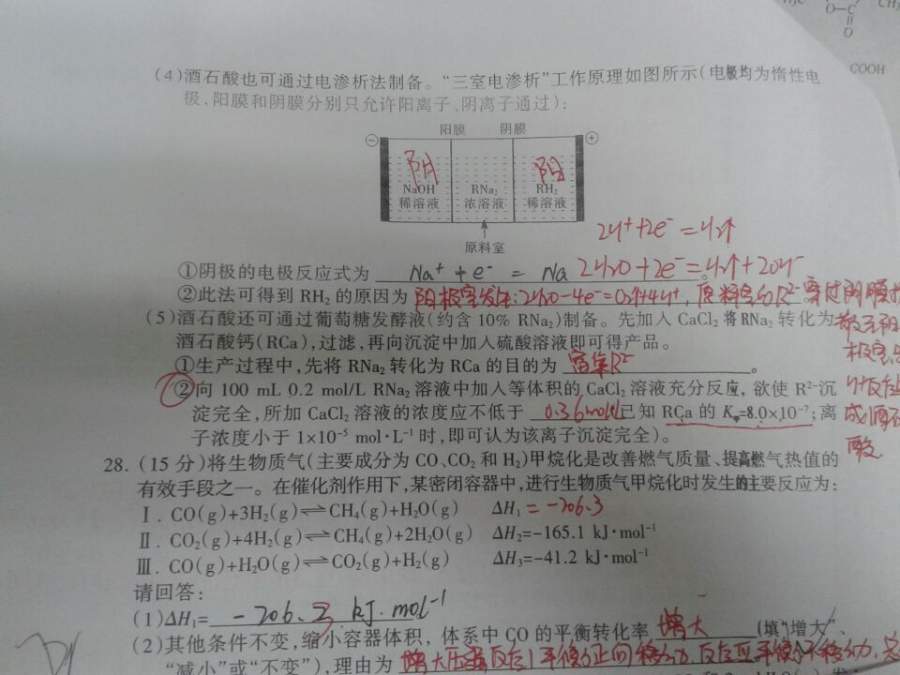 O-C
O
COOH
(4)酒石酸也可通过电渗析法制备。“三室电渗析”工作原理如图所示(电极均为惰性电
极,阳膜和阴膜分别只允许阳离子、阴离子通过):
阳膜 阴膜
阴 阳
NaOH RNa₂ RH₂
稀溶液 浓溶液 稀溶液
原料室
2H⁺+2e⁻=H₂↑
①阴极的电极反应式为 Na⁺+e⁻=Na 2H₂O+2e⁻=H₂↑+2OH⁻
②此法可得到 RH₂ 的原因为 阳极室发生:2H₂O-4e⁻=O₂↑+4H⁺,原料室的R²⁻穿过阴膜
(5)酒石酸还可通过葡萄糖发酵液(约含 10% RNa₂)制备。先加入 CaCl₂ 将 RNa₂ 转化为
酒石酸钙(RCa),过滤,再向沉淀中加入硫酸溶液即可得产品。
①生产过程中,先将 RNa₂ 转化为 RCa 的目的为 富集R²⁻。
②向 100 mL 0.2 mol/L RNa₂ 溶液中加入等体积的 CaCl₂ 溶液充分反应,欲使 R²⁻沉
淀完全,所加 CaCl₂ 溶液的浓度应不低于 0.36mol/L已知 RCa 的 Ksp=8.0×10⁻⁷;离
子浓度小于 1×10⁻⁵ mol·L⁻¹ 时,即可认为该离子沉淀完全)。
28. (15 分)将生物质气(主要成分为 CO、CO₂ 和 H₂)甲烷化是改善燃气质量、提高燃气热值的
有效手段之一。在催化剂作用下,某密闭容器中,进行生物质气甲烷化时发生的主要反应为:
Ⅰ. CO(g)+3H₂(g)⇌CH₄(g)+H₂O(g) ΔH₁=-206.3
Ⅱ. CO₂(g)+4H₂(g)⇌CH₄(g)+2H₂O(g) ΔH₂=-165.1 kJ·mol⁻¹
Ⅲ. CO(g)+H₂O(g)⇌CO₂(g)+H₂(g) ΔH₃=-41.2 kJ·mol⁻¹
请回答:
(1)ΔH₁= -206.3 kJ·mol⁻¹
(2)其他条件不变,缩小容器体积,体系中 CO 的平衡转化率 增大 (填“增大”、
“减小”或“不变”),理由为 增大压强反应Ⅰ平衡正向移动,反应Ⅲ平衡不移动,